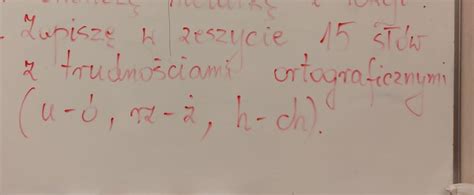 z lekcji.
. Zapiszę w zeszycie 15 słów
z trudnościami ortograficznymi
(u-ó, rz-ż, h-ch).